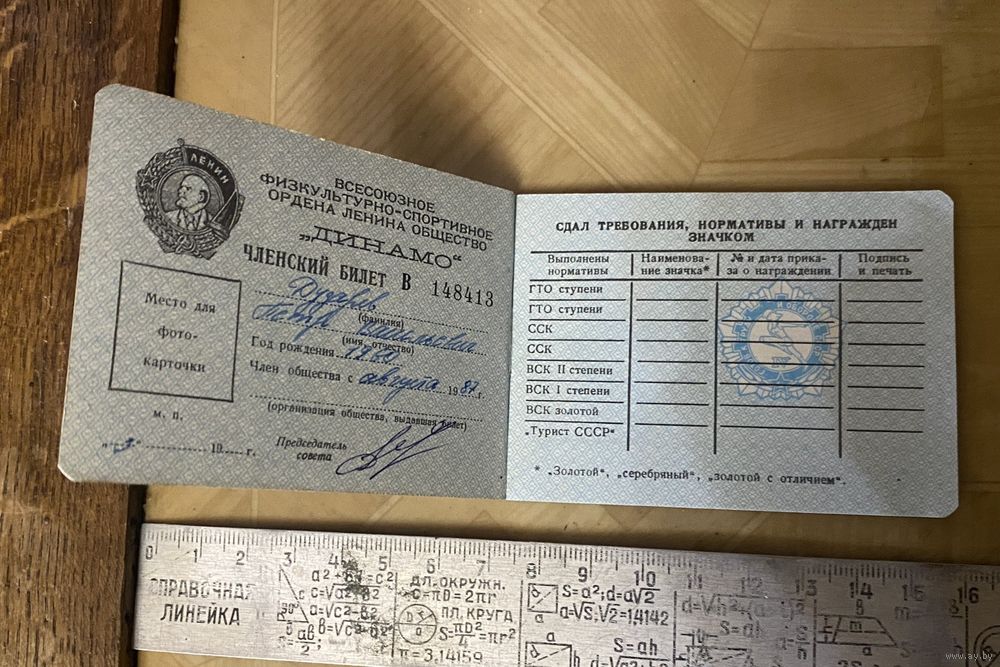 ЛЕНИН
ВСЕСОЮЗНОЕ
ФИЗКУЛЬТУРНО-СПОРТИВНОЕ
ОРДЕНА ЛЕНИНА ОБЩЕСТВО
„ДИНАМО“
ЧЛЕНСКИЙ БИЛЕТ В 148413
(фамилия)
Петр Васильевич
(имя, отчество)
Год рождения
Член общества с августа 1987 г.
(организация общества, выдавшая билет)
Место для
фото-
карточки
м. п.
19 г.
Председатель
совета
СДАЛ ТРЕБОВАНИЯ, НОРМАТИВЫ И НАГРАЖДЕН
ЗНАЧКОМ
Выполнены нормативы
Наименова-ние значка*
№ и дата прика-за о награждении
Подпись и печать
ГТО ступени
ГТО ступени
ССК
ССК
ВСК II степени
ВСК I степени
ВСК золотой
„Турист СССР“
* „Золотой“, „серебряный“, „золотой с отличием“.
0 1 2 3 4 5 6 7 8 9 10 11 12 13 14 15 16
СПРАВОЧНАЯ
ЛИНЕЙКА
a²+b²=c²
c=√a²+b²
a=√c²-b²
b=√c²-a²
S=ab/2
ДЛ. ОКРУЖН.
C=πD=2πr
ПЛ. КРУГА
S=πD²/4=πr²
π=3,14159
S=a², d=a√2
a=√S. √2=1,4142
S=ah
www.ay.by